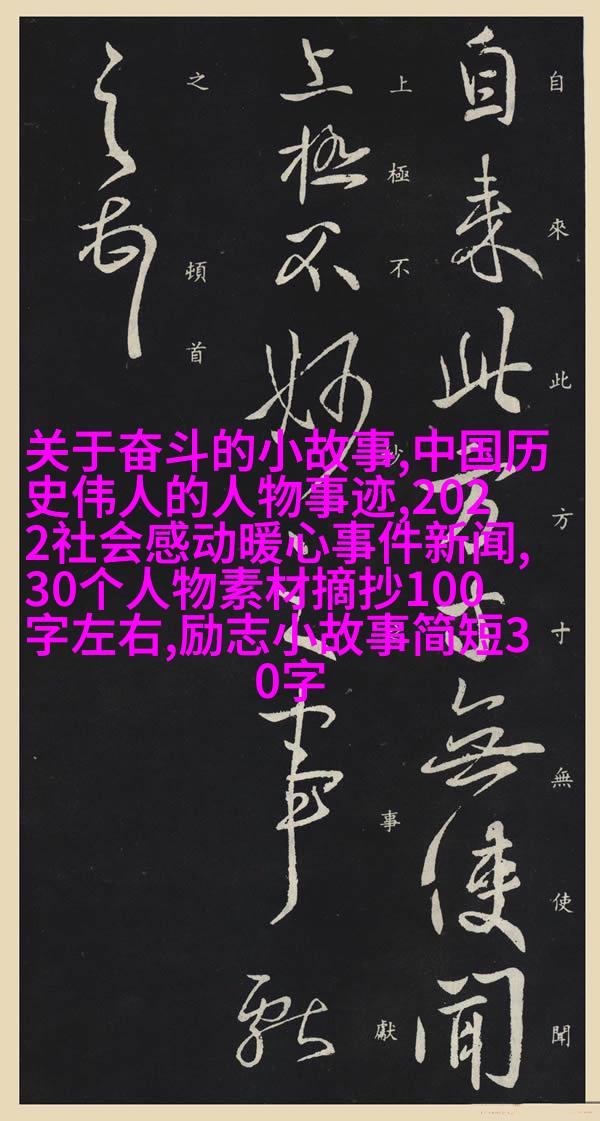 自來此方寸無使聞
自來此方寸無使聞
上極不妙之事獻
上極不妙事獻
之頓首
之頓首
关于奋斗的小故事,中国历
史伟人的人物事迹,202
2社会感动暖心事件新闻,
30个人物素材摘抄100
字左右,励志小故事简短3
0字